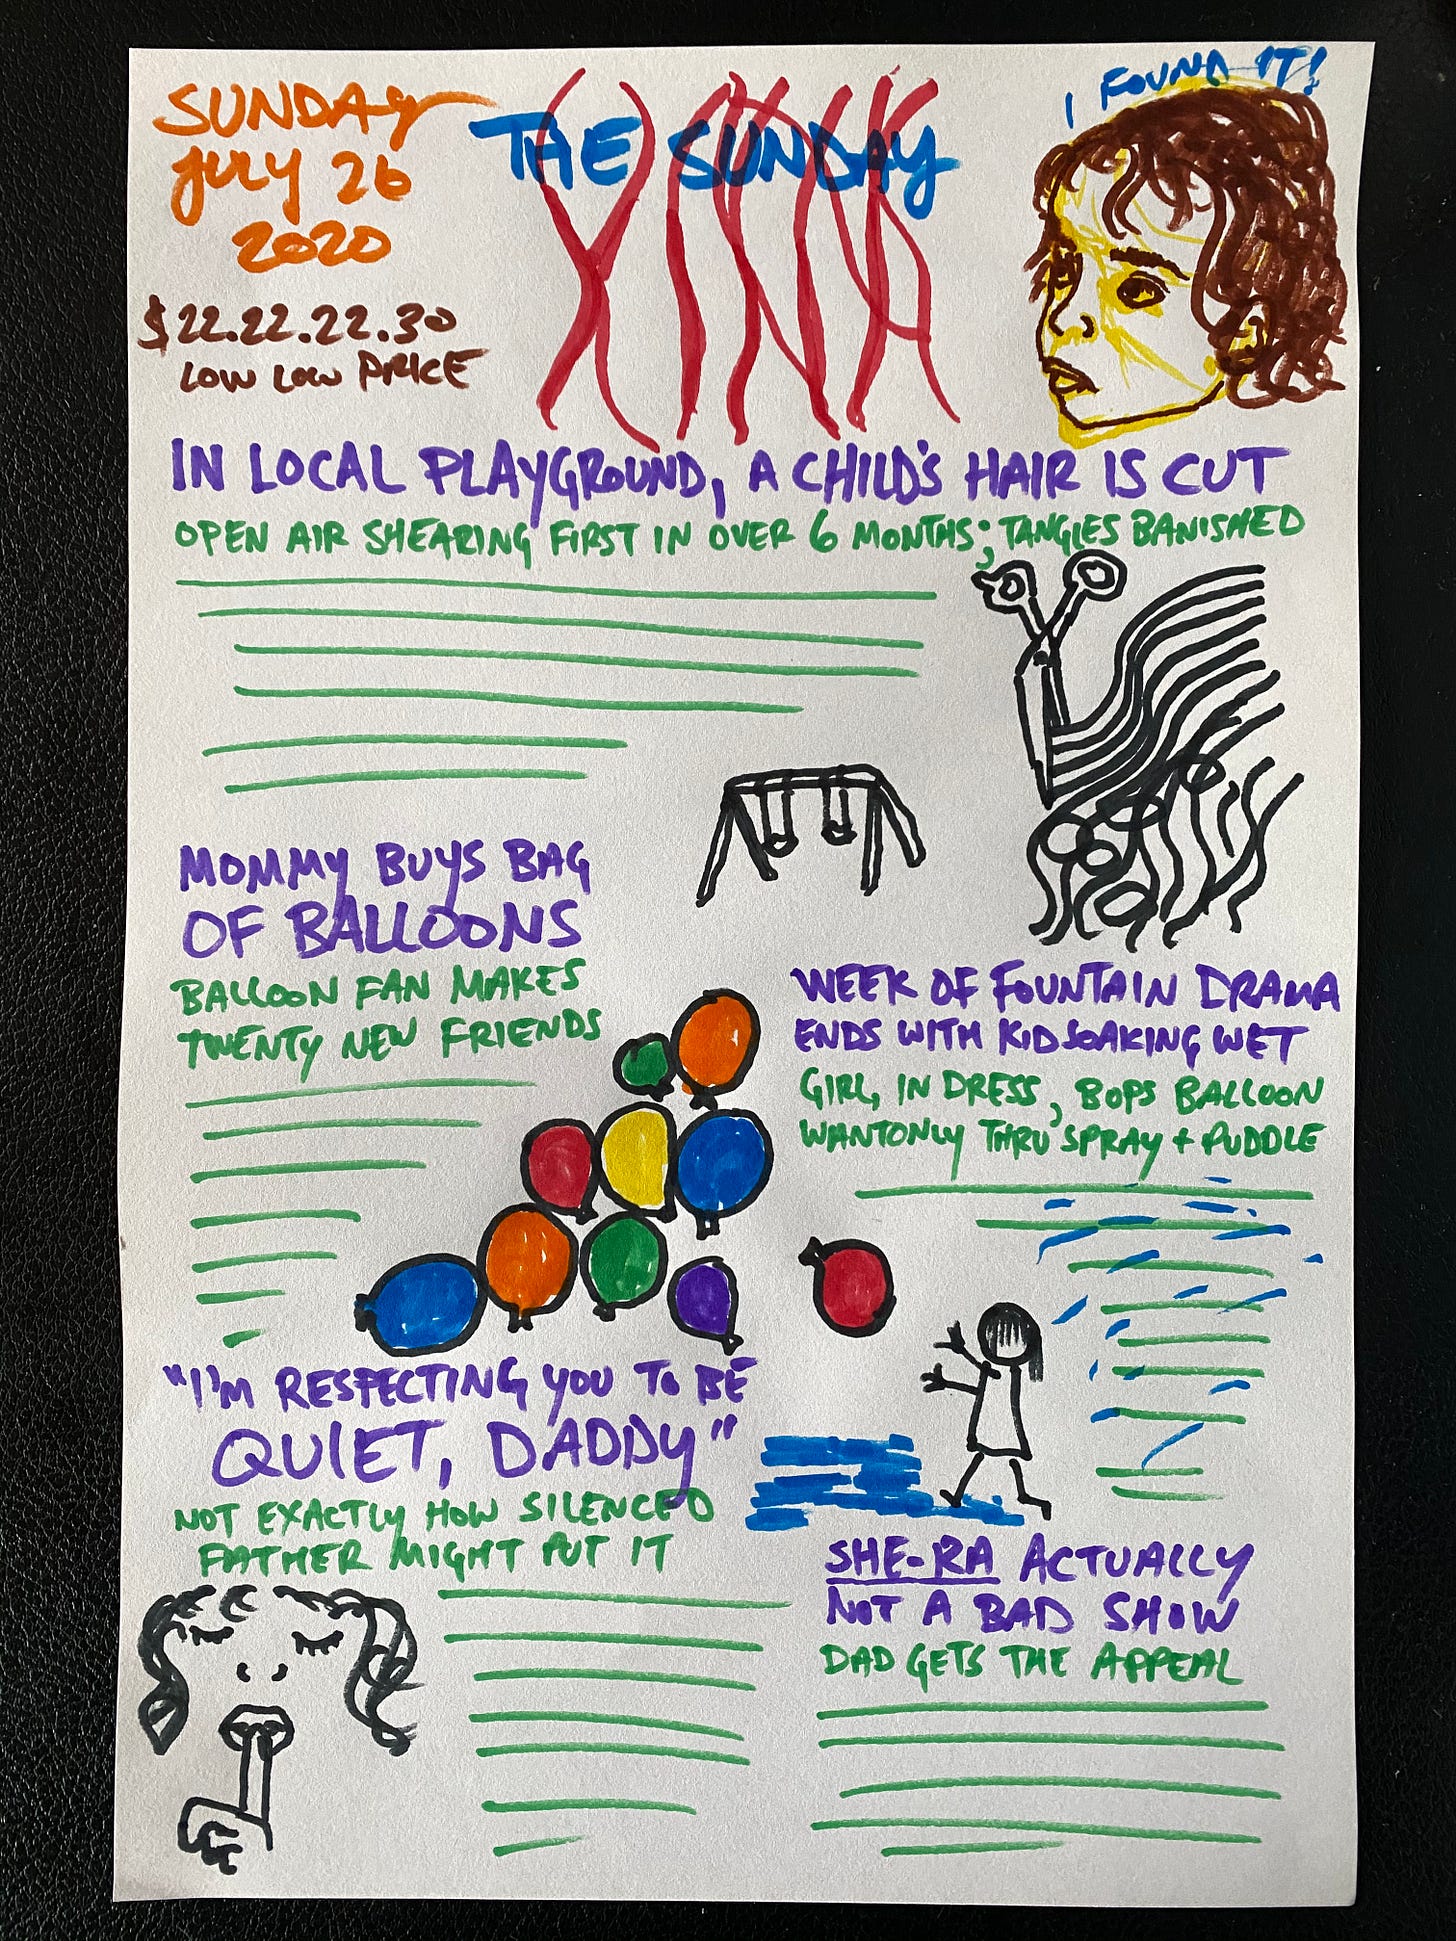 SUNDAY
JULY 26
2020
$22.22.22.30
LOW LOW PRICE
THE SUNDAY
XINA
I FOUND IT!
IN LOCAL PLAYGROUND, A CHILD'S HAIR IS CUT
OPEN AIR SHEARING FIRST IN OVER 6 MONTHS; TANGLES BANISHED
MOMMY BUYS BAG
OF BALLOONS
BALLOON FAN MAKES
TWENTY NEW FRIENDS
WEEK OF FOUNTAIN DRAMA
ENDS WITH KID SOAKING WET
GIRL, IN DRESS, BOPS BALLOON
WANTONLY THRU SPRAY + PUDDLE
"I'M RESPECTING YOU TO BE
QUIET, DADDY"
NOT EXACTLY HOW SILENCED
FATHER MIGHT PUT IT
SHE-RA ACTUALLY
NOT A BAD SHOW
DAD GETS THE APPEAL